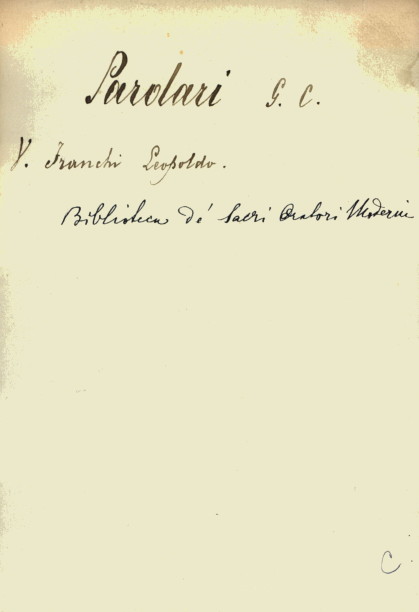 Parolari G. C.
V. Franchi Leopoldo.
Biblioteca de' Sacri Oratori Moderni
C.